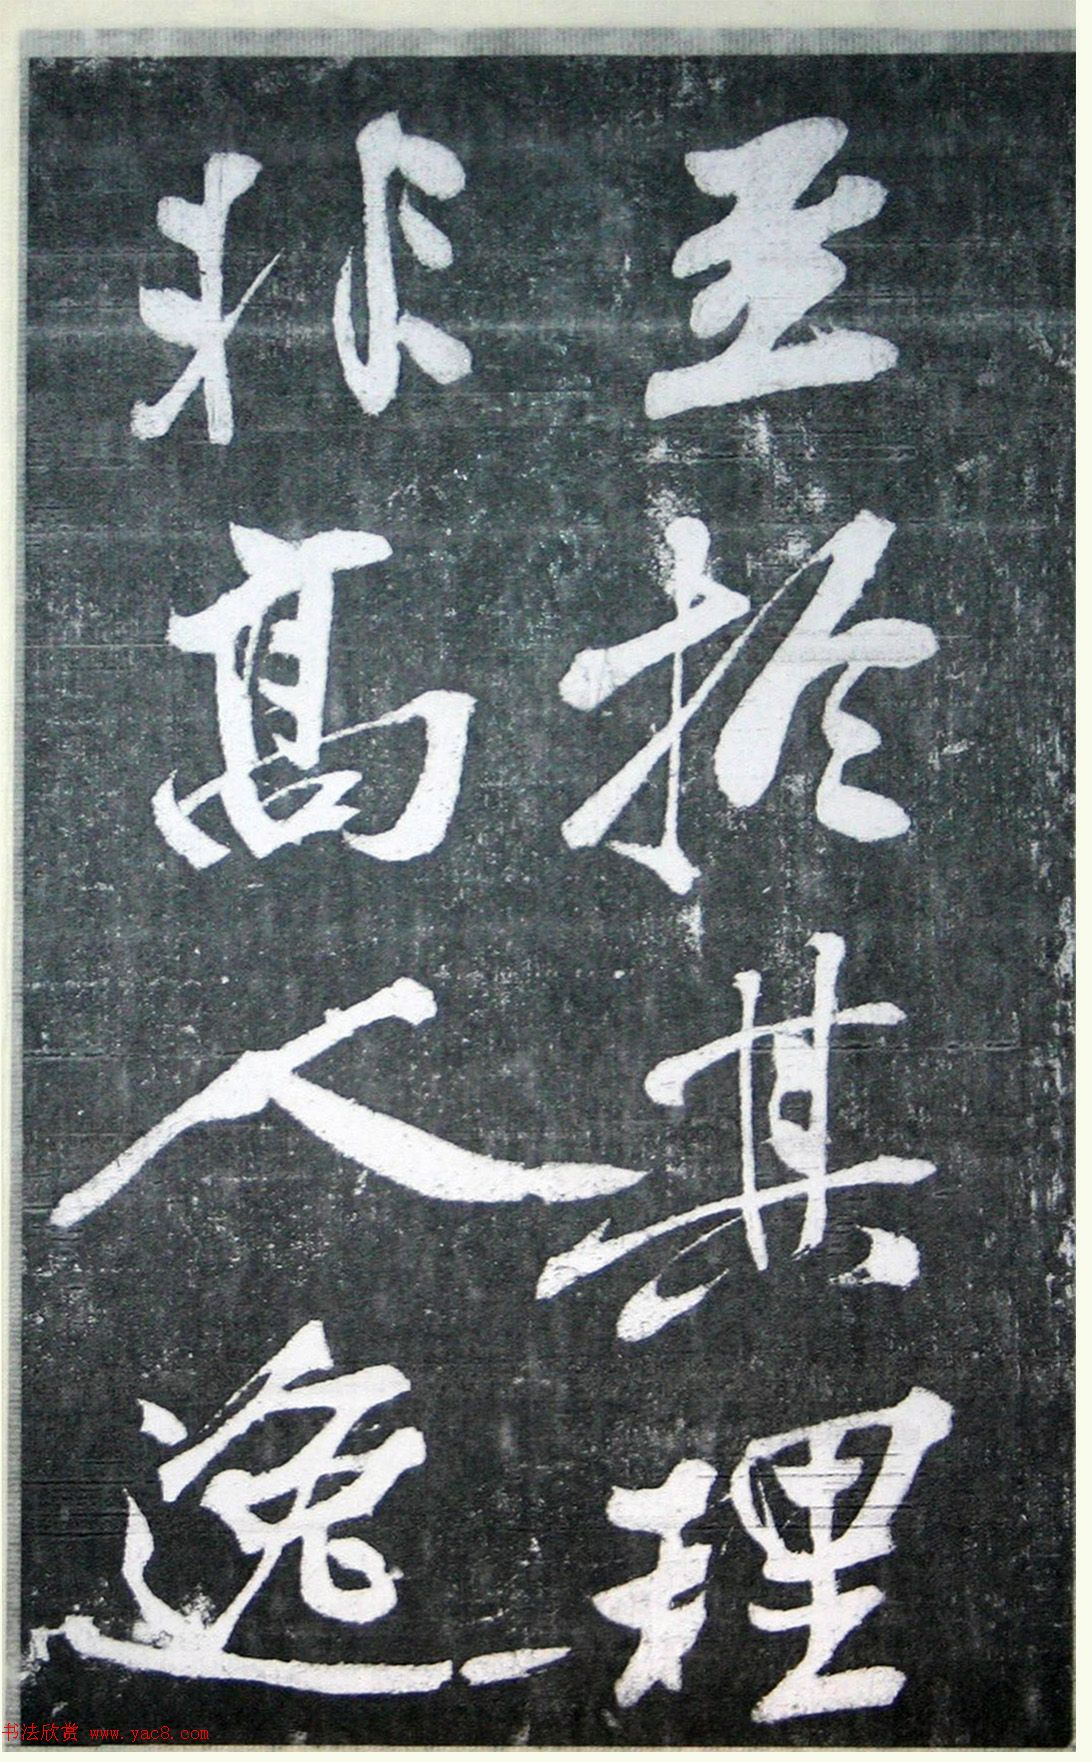 至於其理
非高人逸
书法欣赏 www.yac8.com